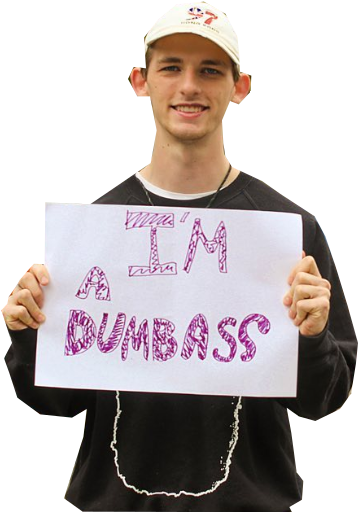 97
I'M
A
DUMBASS